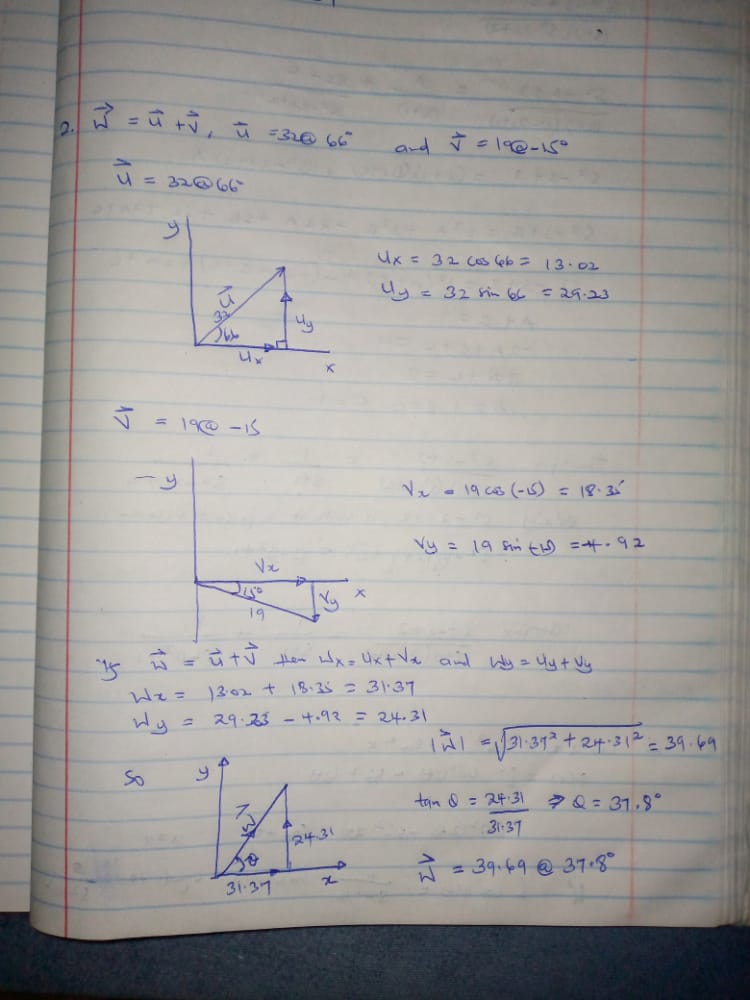 2. W⃗ = u⃗ + v⃗, u⃗ = 32@ 66° and v⃗ = 19@-15°
u⃗ = 32@66°
y
u⃗
32
66
uy
ux
x
ux = 32 cos 66 = 13.02
uy = 32 sin 66 = 29.23
v⃗ = 19@ -15
- y
Vx
x
15°
19
Vy
Vx = 19 cos (-15) = 18.35
Vy = 19 sin (-15) = -4.92
If w⃗ = u⃗ + v⃗ then Wx = ux + Vx and Wy = uy + Vy
Wx = 13.02 + 18.35 = 31.37
Wy = 29.23 - 4.92 = 24.31
|w⃗| = √31.37² + 24.31² = 39.69
So
y
w⃗
θ
24.31
31.37
x
tan θ = 24.31 ⇒ θ = 37.8°
31.37
w⃗ = 39.69 @ 37.8°